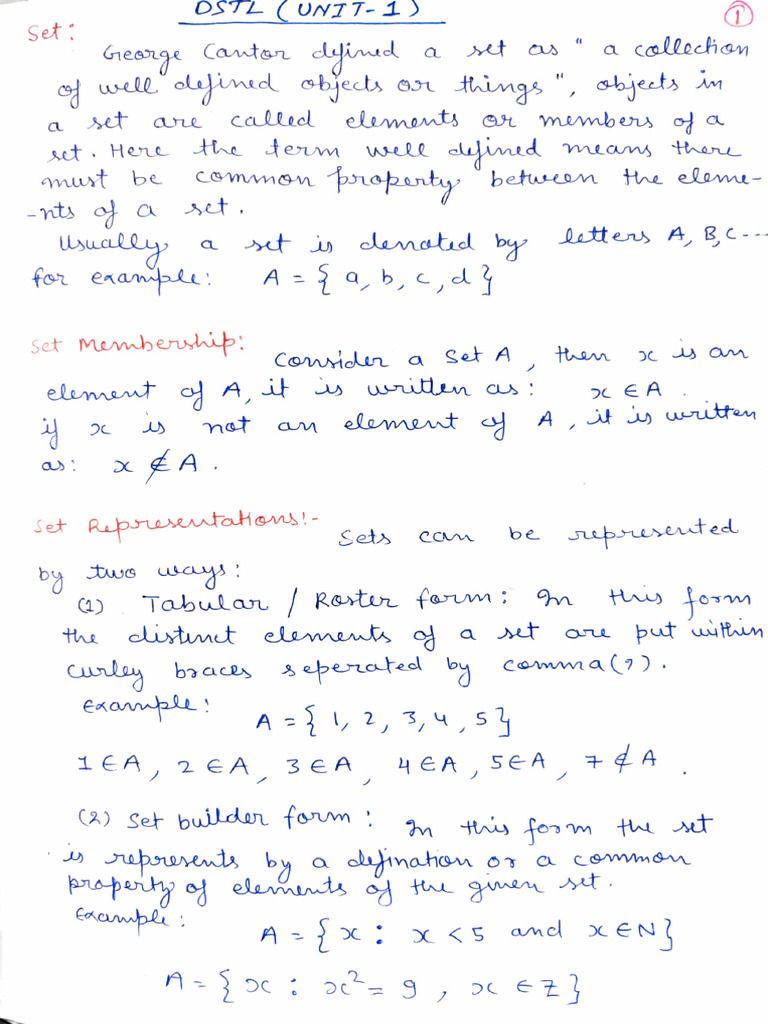 DSTL (UNIT-1)
1
Set:
George Cantor defined a set as " a collection
of well defined objects or things", objects in
a set are called elements or members of a
set. Here the term well defined means there
must be common property between the eleme-
-nts of a set.
Usually a set is denoted by letters A, B, C ---
for example: A = { a, b, c, d }
Set Membership:
Consider a Set A, then x is an
element of A, it is written as: x ∈ A.
if x is not an element of A, it is written
as: x ∉ A.
Set Representations:-
Sets can be represented
by two ways:
(1) Tabular / Roster form: In this form
the distinct elements of a set are put within
curley braces seperated by comma(,).
Example:
A = { 1, 2, 3, 4, 5}
1 ∈ A, 2 ∈ A, 3 ∈ A, 4 ∈ A, 5 ∈ A, 7 ∉ A.
(2) Set builder form: In this form the set
is represents by a defination or a common
property of elements of the given set.
Example:
A = { x : x < 5 and x ∈ N}
A = { x : x² = 9, x ∈ Z}